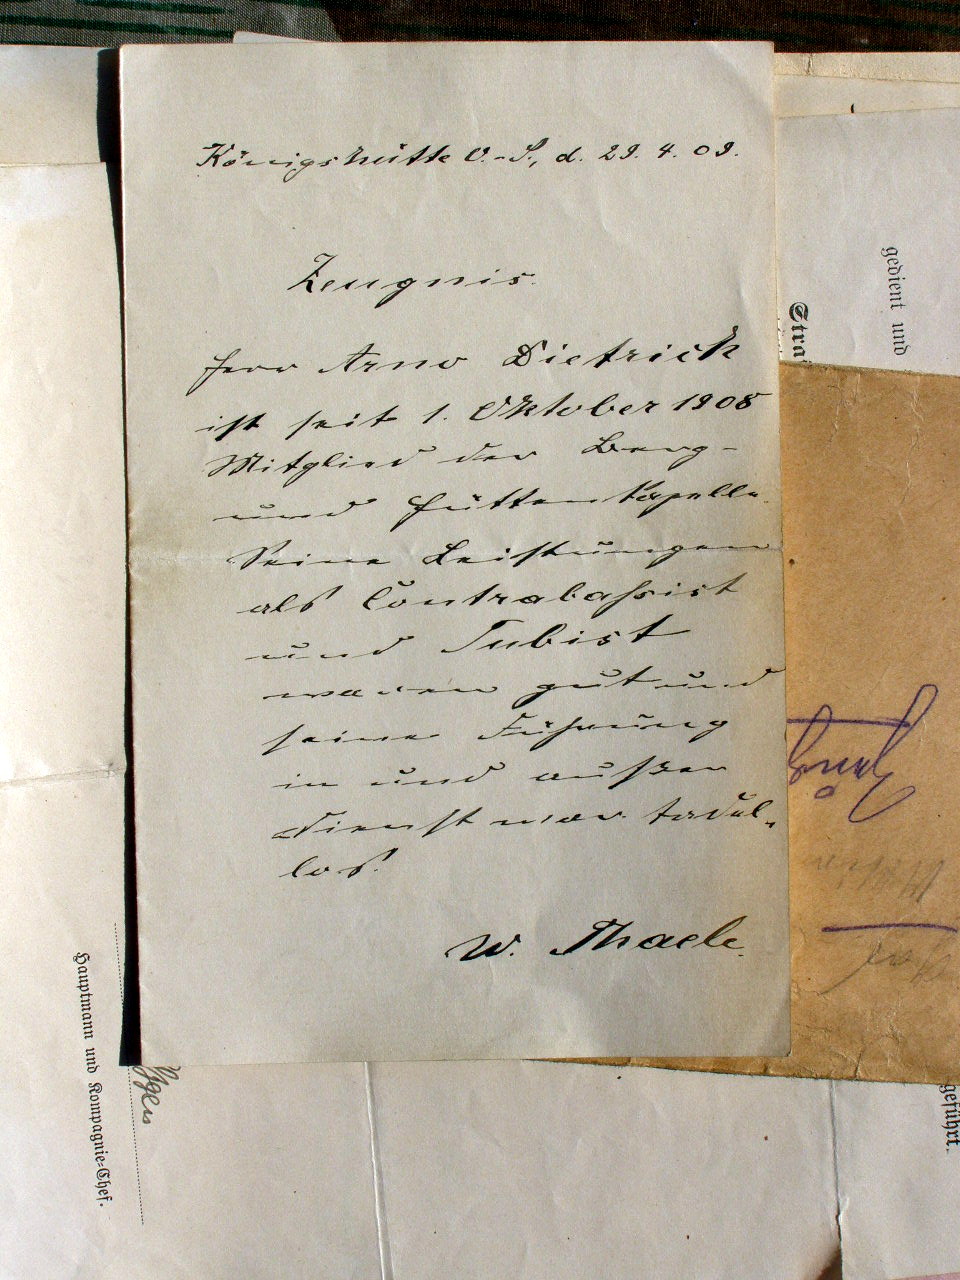 Königshütte O.-S., d. 29. 4. 09.
Zeugnis.
Herr Arno Dietrich
ist seit 1. Oktober 1908
Mitglied der Berg-
und Hüttenkapelle.
Seine Leistungen
als Contrabassist
und Tubist
waren gut und
seine Führung
in und außer
Dienst war tadel-
los.
W. Thaele.
gedient und
Stra
geführt.
Hauptmann und Kompagnie-Chef.